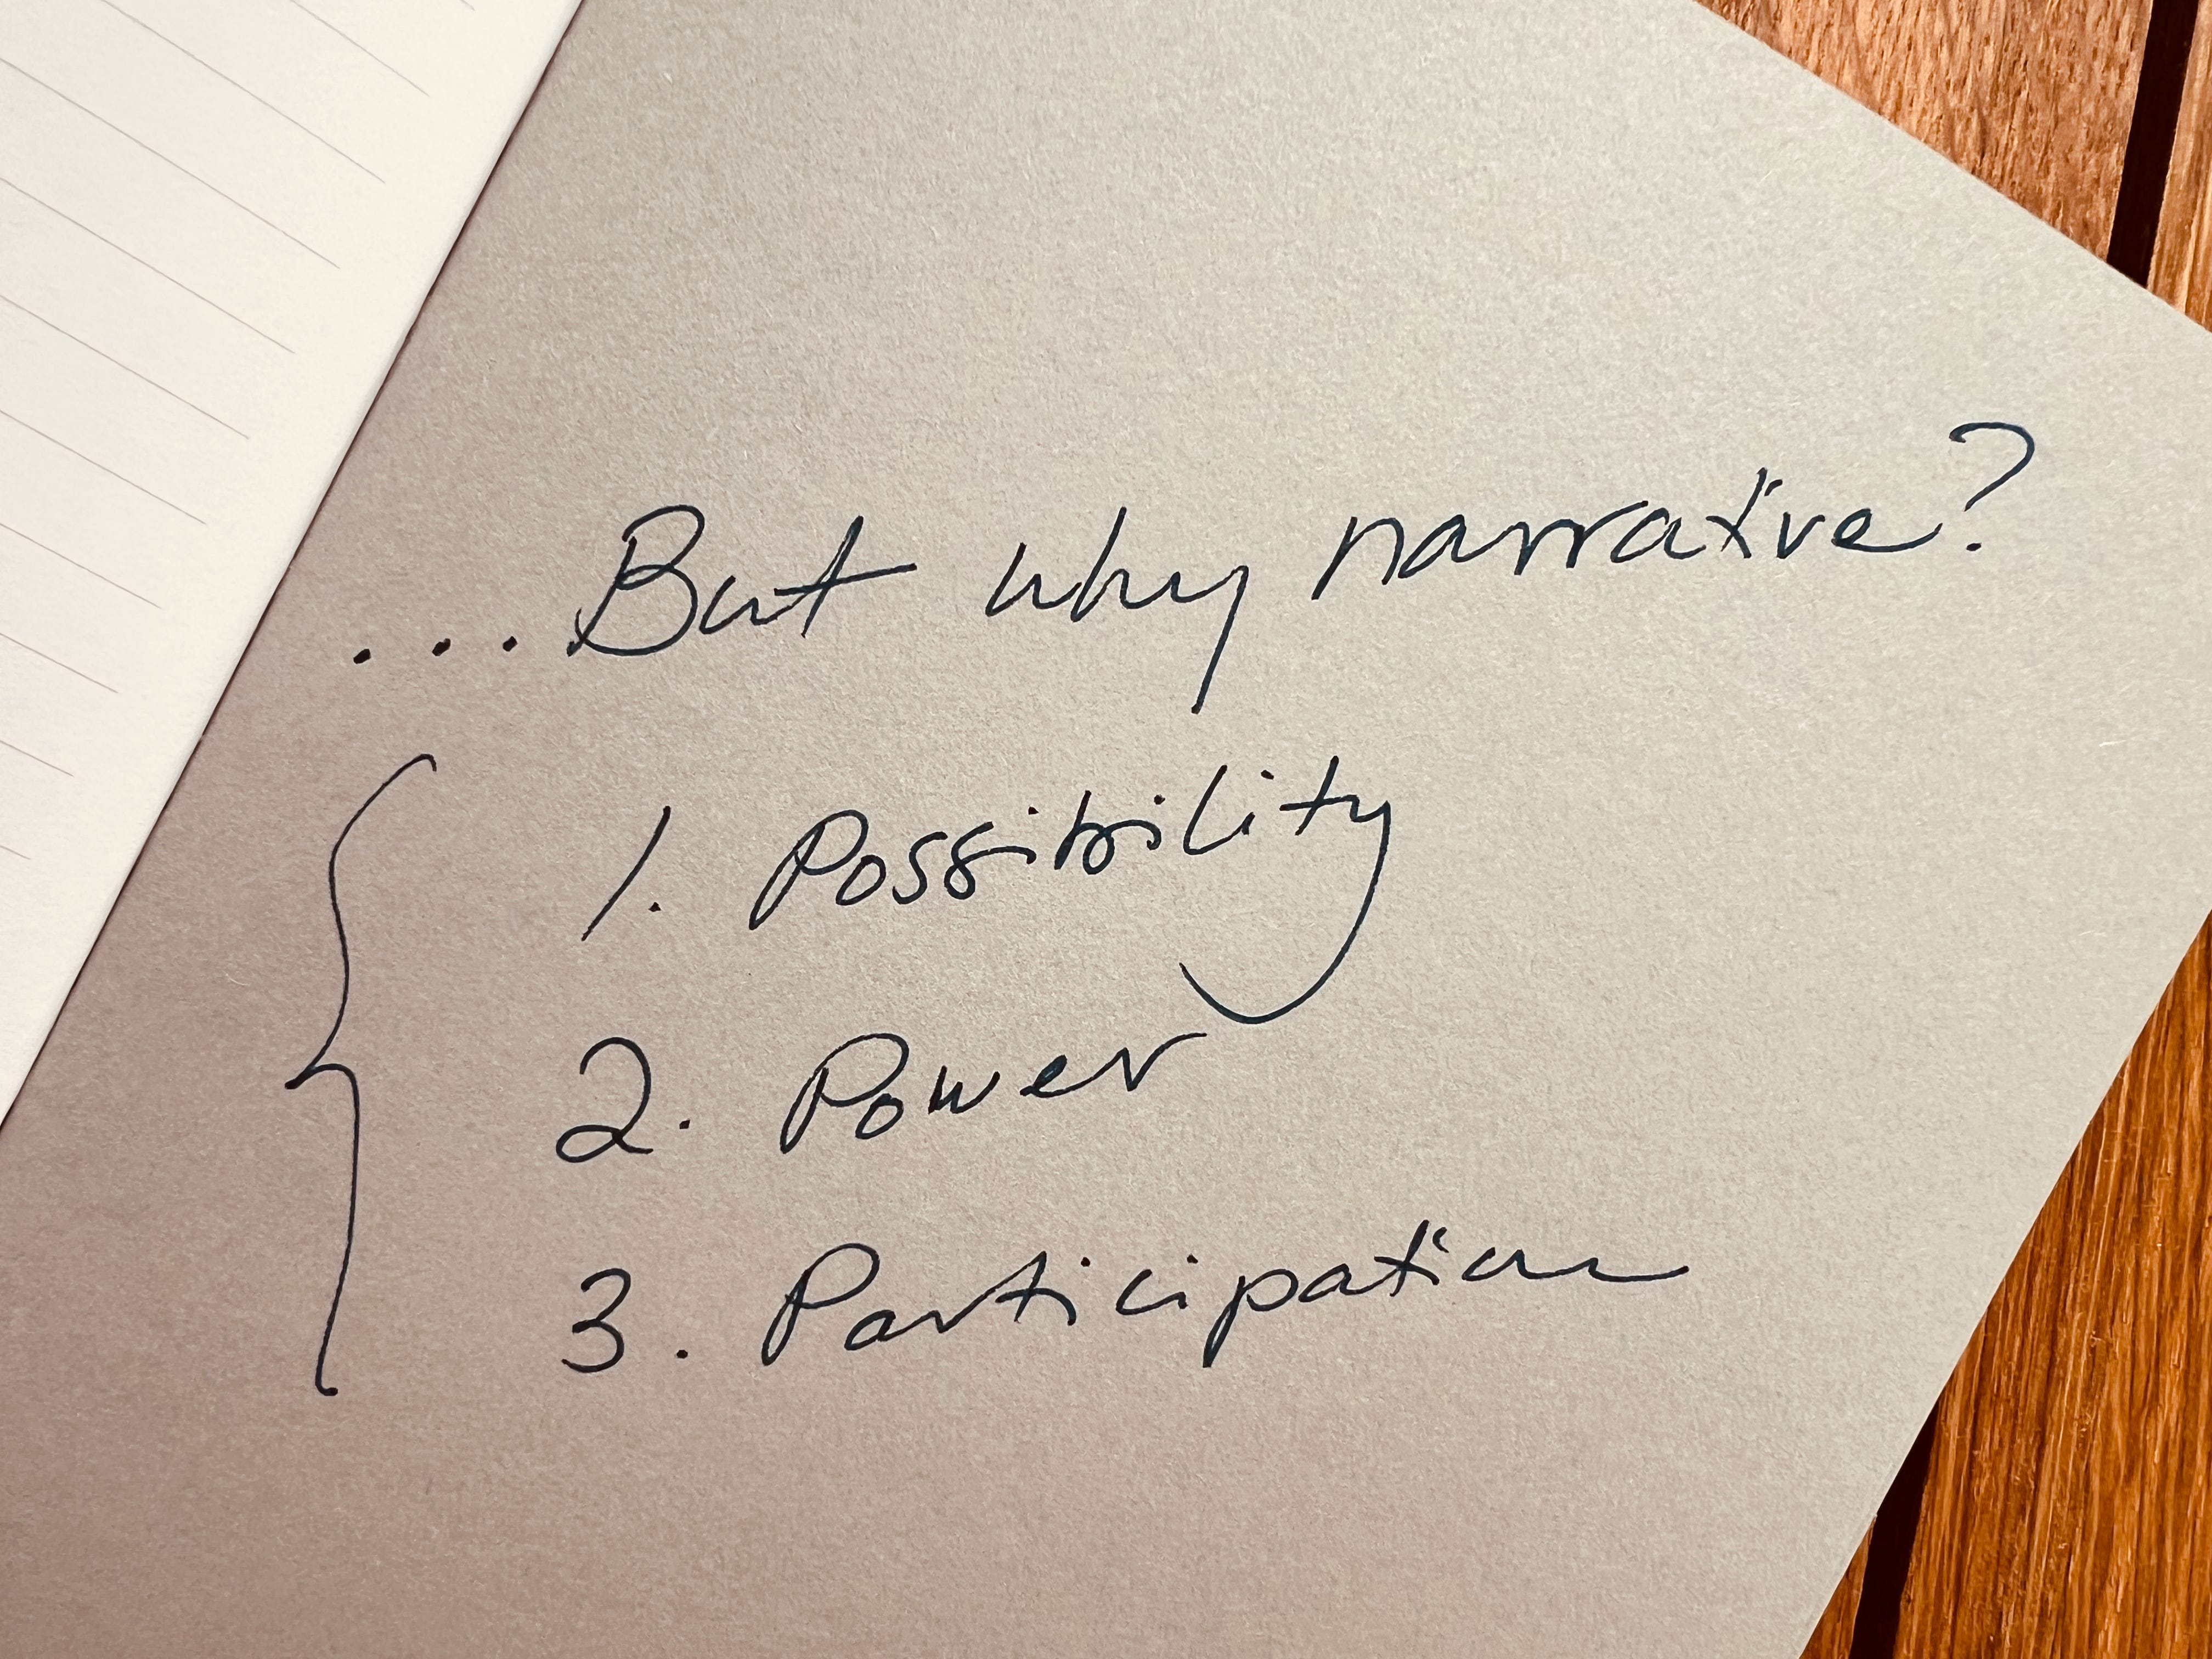 ...But why narrative?
1. Possibility
2. Power
3. Participation